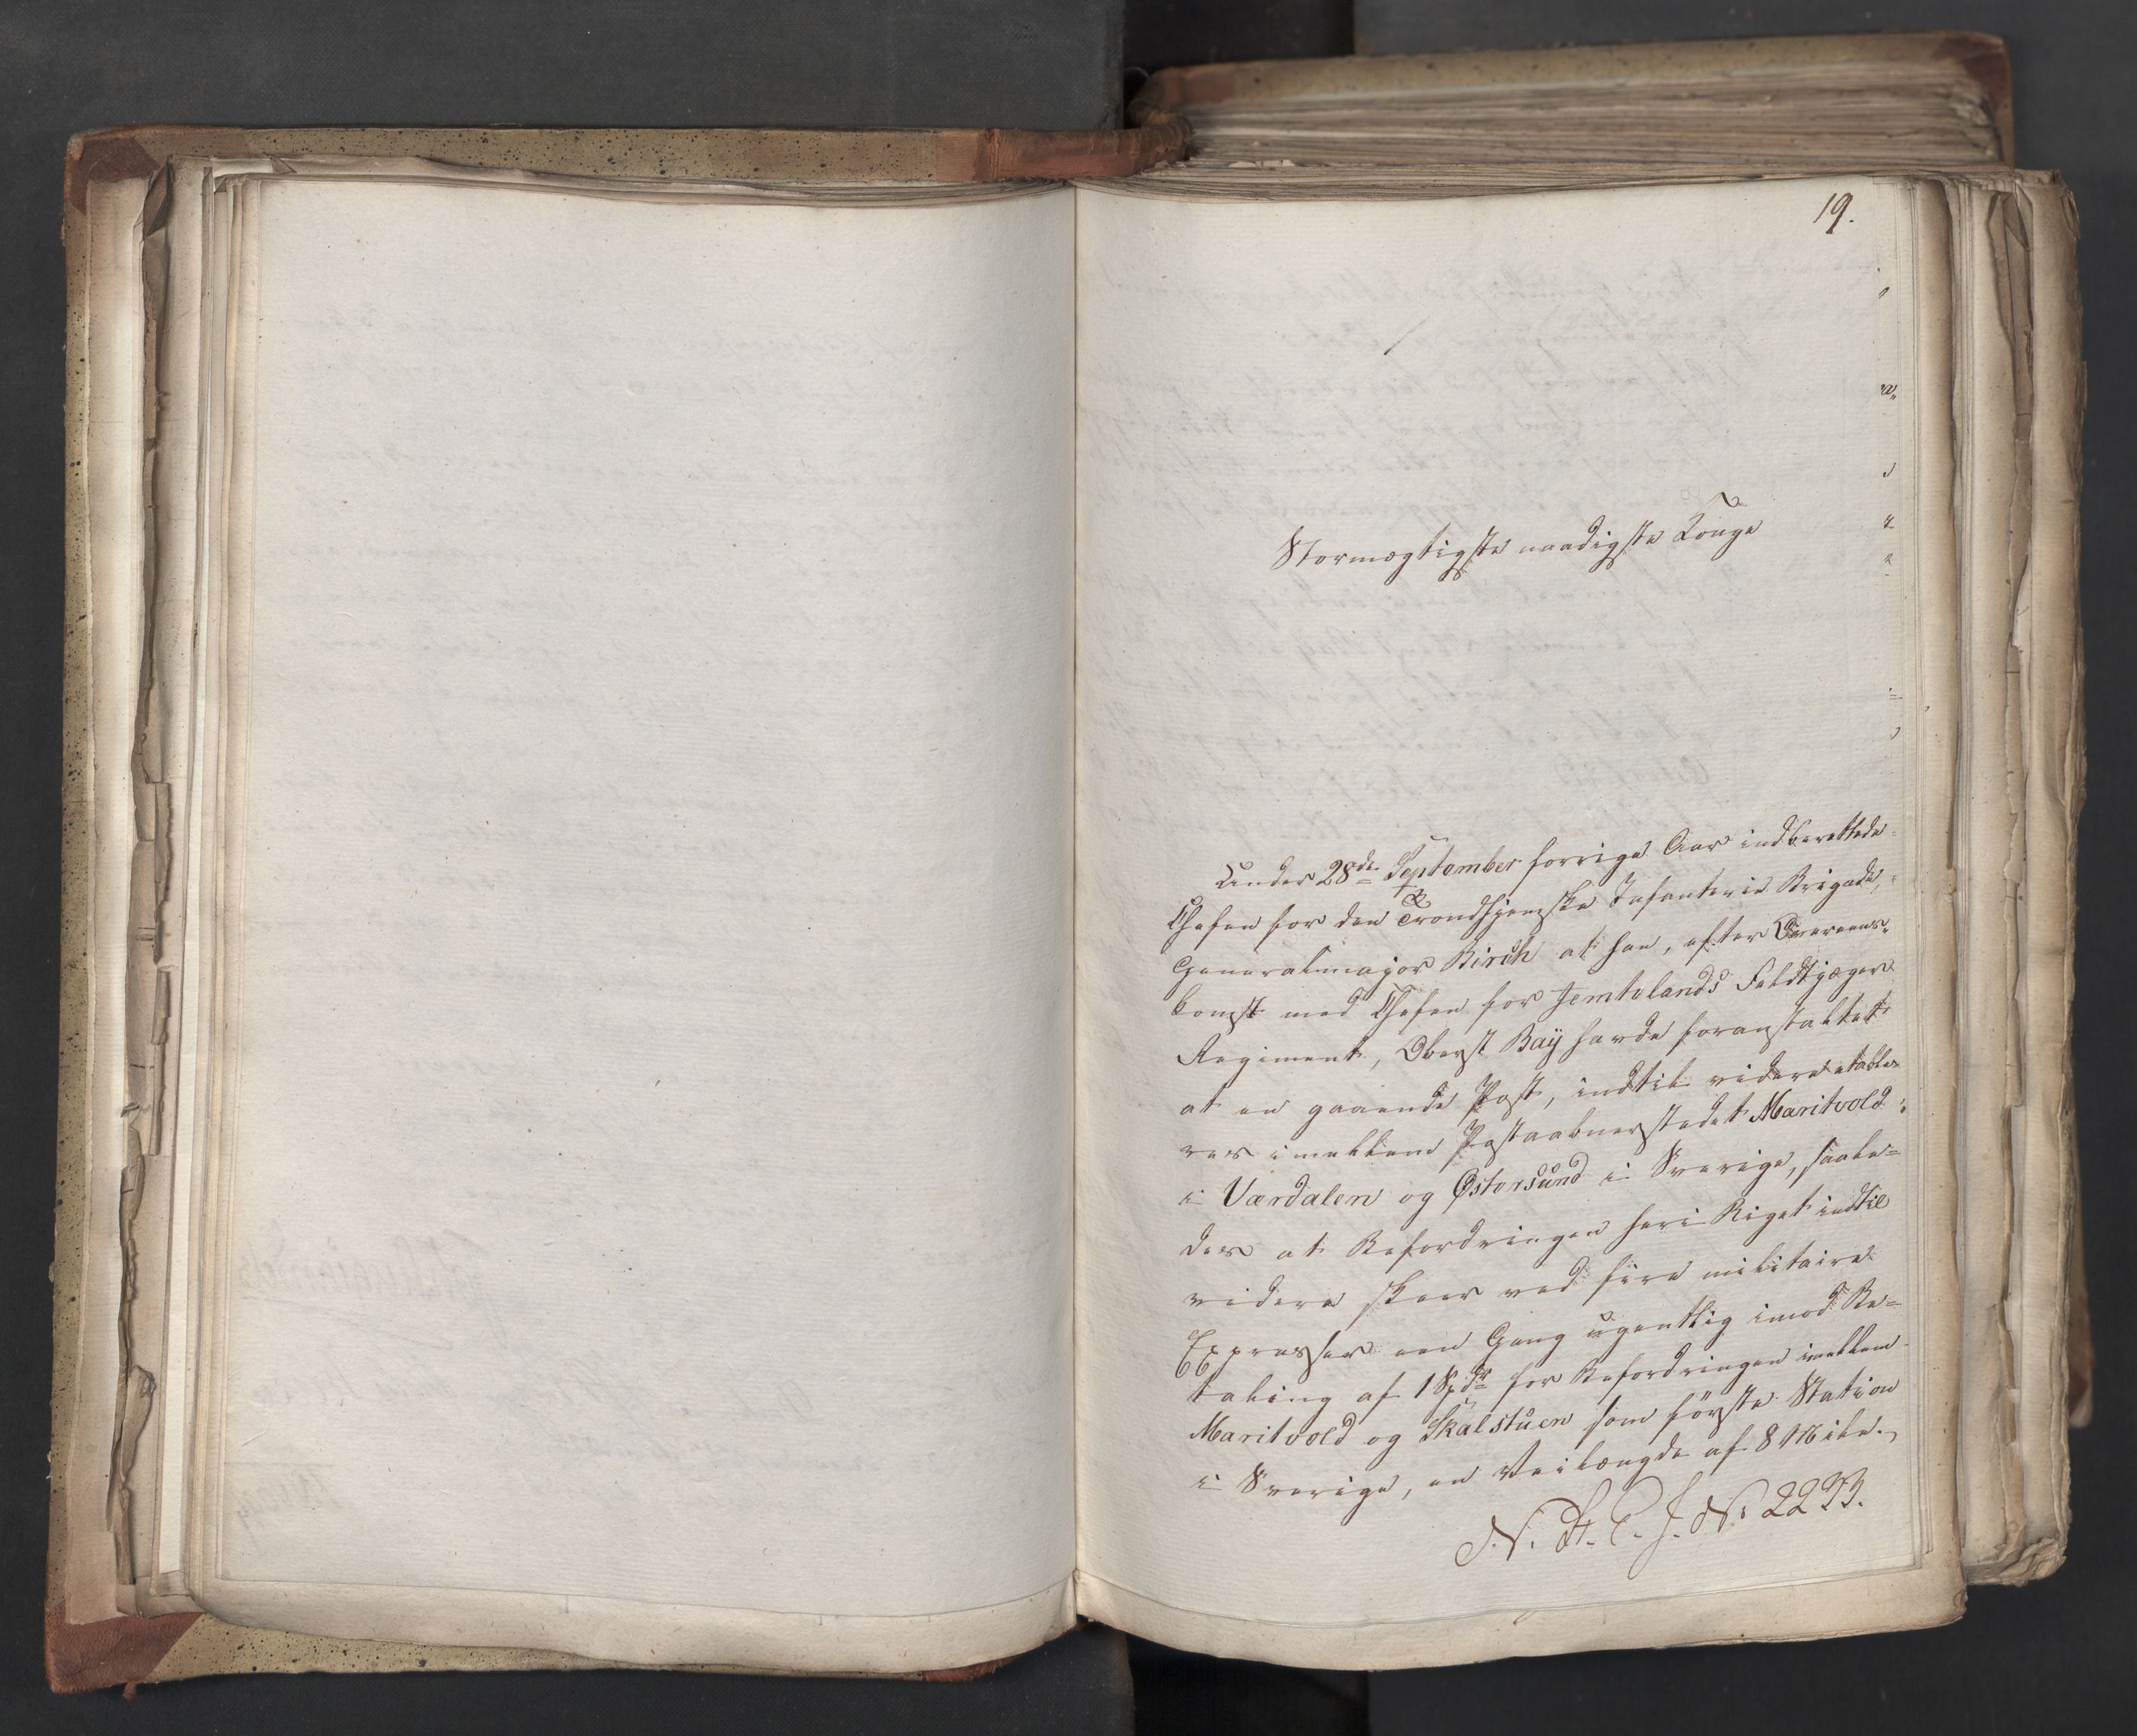 19.
Stormægtigste naadigste Konge
Under 28de September forrige Aar indberettede
Chefen for den Trondhjemske Infanterie Brigade,
Generalmajor Birch at han, efter Overeens-
komst med Chefen for Jemtelands Feldtjæger
Regiment, Oberst Baÿ havde foranstaltet
at en gaaende Post, indtil videre etable-
res imellem Postaabnerstedet Maritvold
i Værdalen og Østersund i Sverige, saale=
des at Befordringen heri Riget indtil
videre skeer ved fire militaire
Expresser een Gang ugentlig imod Be=
taling af 1 Spdr for Befordringen imellem
Maritvold og Skalstuen som første Station
i Sverige, en Veilængde af 8 Mile.
N. St. C. J. No 2233.